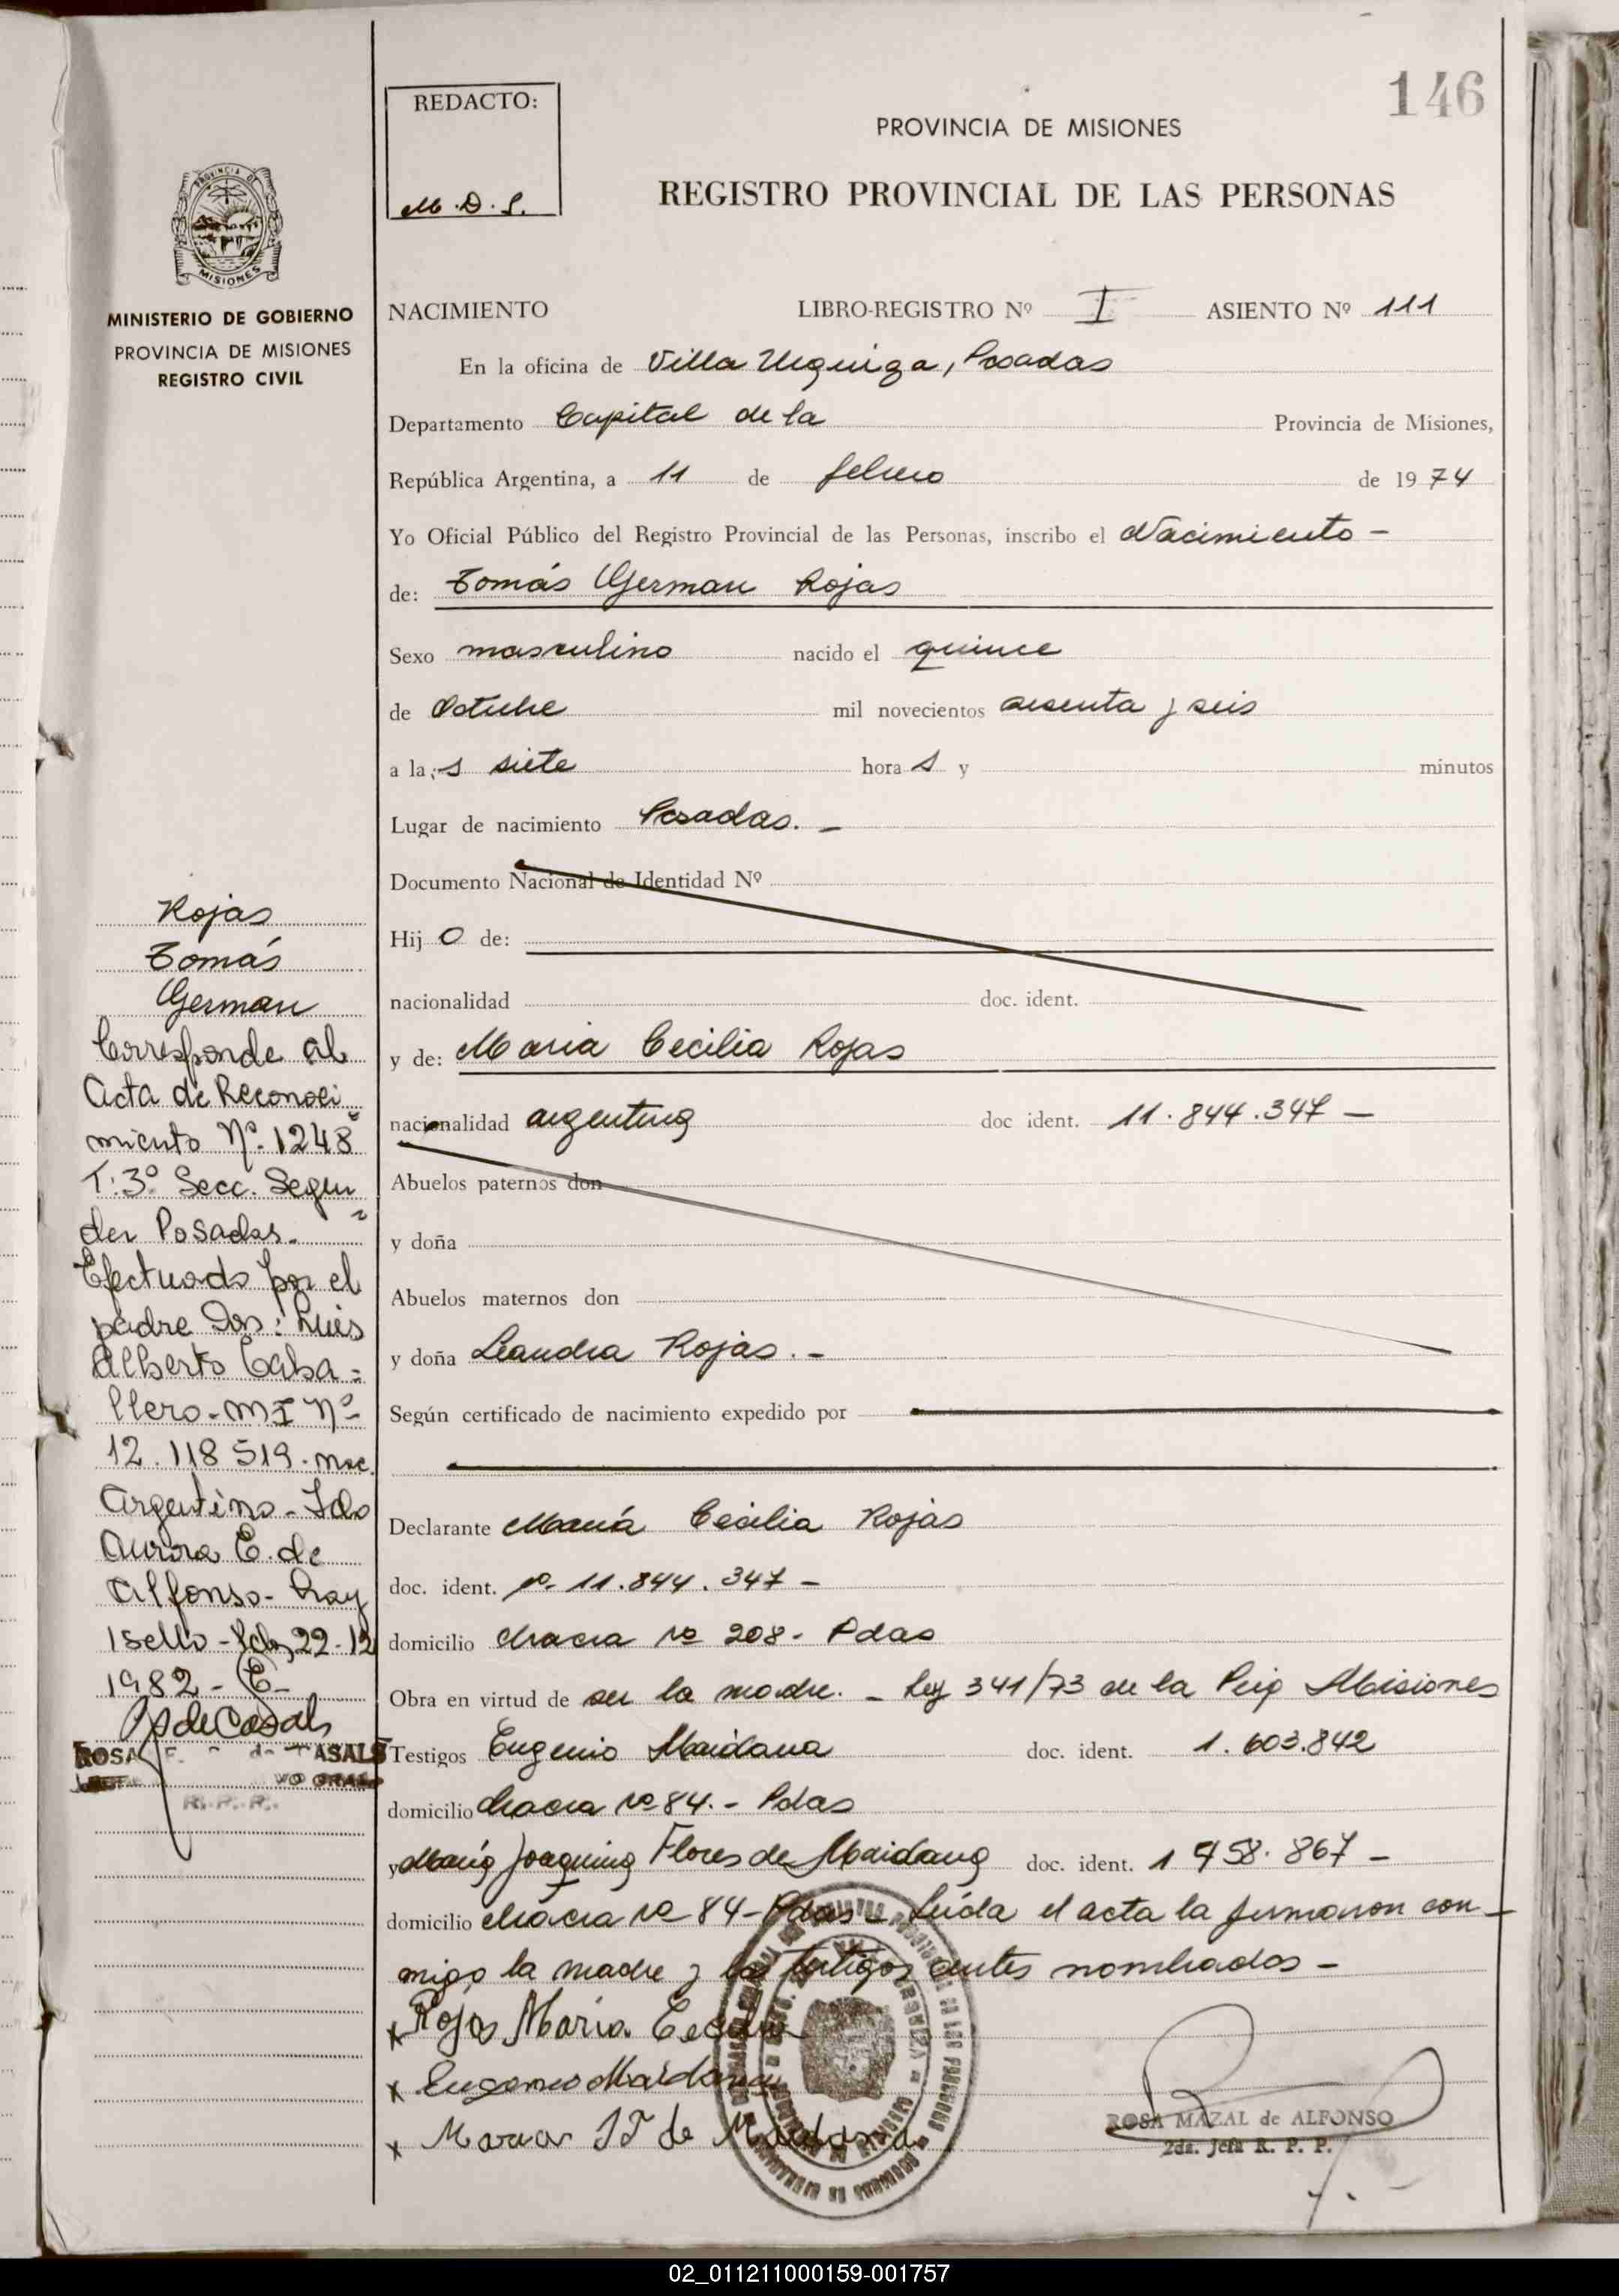 146
REDACTO:
M.D.S.
PROVINCIA DE MISIONES
REGISTRO PROVINCIAL DE LAS PERSONAS
PROVINCIA DE
MISIONES
MINISTERIO DE GOBIERNO
PROVINCIA DE MISIONES
REGISTRO CIVIL
NACIMIENTO LIBRO-REGISTRO Nº I ASIENTO Nº 111
En la oficina de Villa Urquiza, Posadas
Departamento Capital de la Provincia de Misiones,
República Argentina, a 11 de febrero de 1974
Yo Oficial Público del Registro Provincial de las Personas, inscribo el Nacimiento -
de: Tomás German Rojas
Sexo masculino nacido el quince
de Octubre mil novecientos sesenta y seis
a las siete horas y minutos
Lugar de nacimiento Posadas. -
Documento Nacional de Identidad Nº
Hijo de:
nacionalidad doc. ident.
y de: Maria Cecilia Rojas
nacionalidad argentina doc ident. 11.844.347 -
Abuelos paternos don
y doña
Abuelos maternos don
y doña Leandra Rojas. -
Según certificado de nacimiento expedido por
Declarante María Cecilia Rojas
doc. ident. Nº 11.844.347 -
domicilio chacra Nº 208 - Pdas
Obra en virtud de ser la madre. - Ley 341/73 de la Misiones
Testigos Eugenio Maidana doc. ident. 1.603.842
domicilio chacra Nº 84. - Pdas
y María Joaquina Flores de Maidana doc. ident. 1 958.867 -
domicilio chacra Nº 84 - Pdas - Leída el acta la firmaron con-
migo la madre y los testigos antes nombrados -
x Rojas María Cecilia
x Eugenio Maidana
x Maria de Maidana
ROSA MAZAL de ALFONSO
2da. Jefa R. P. P.
Rojas
Tomás
German
Corresponde al
Acta de Reconoci
miento Nº 1248
T: 3º Secc. Segun
der Posadas.
Efectuado por el
padre Don: Luis
Alberto Caba=
llero - MI Nº
12.118 519. nac.
Argentino - Fdo
Aurora E. de
Alfonso - Ray
Isello - Pdas, 22-12
1982 - E-
de Casals
ROSA E. de CASALS
R. P. P.
02_011211000159-001757